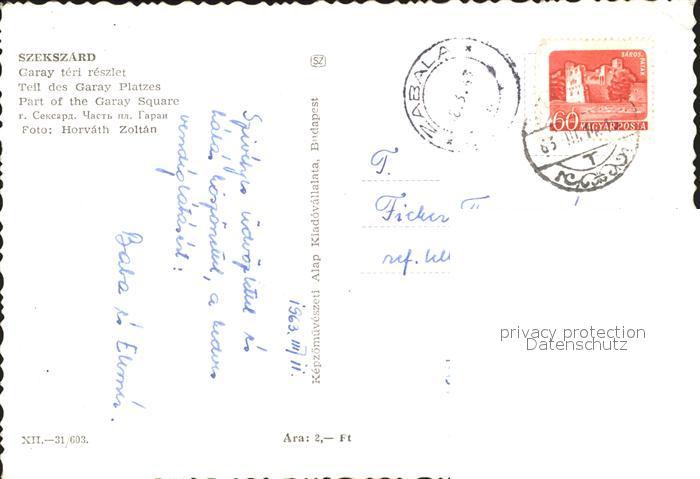 SZEKSZÁRD
Garay téri részlet
Teil des Garay Platzes
Part of the Garay Square
г. Сексард. Часть пл. Гараи
Foto: Horváth Zoltán
XII.—31/603.
Ára: 2,— Ft
Képzőművészeti Alap Kiadóvállalata, Budapest
SZ
1963. III/11.
Szívélyes üdvözlettel és
hálás köszönettel, a kedves
vendéglátásért:
Baba és Elemér.
MABALA
SÁROS-
PATAK
60 MAGYAR POSTA
63 III
T
T.
Ficker
ref.
privacy protection
Datenschutz